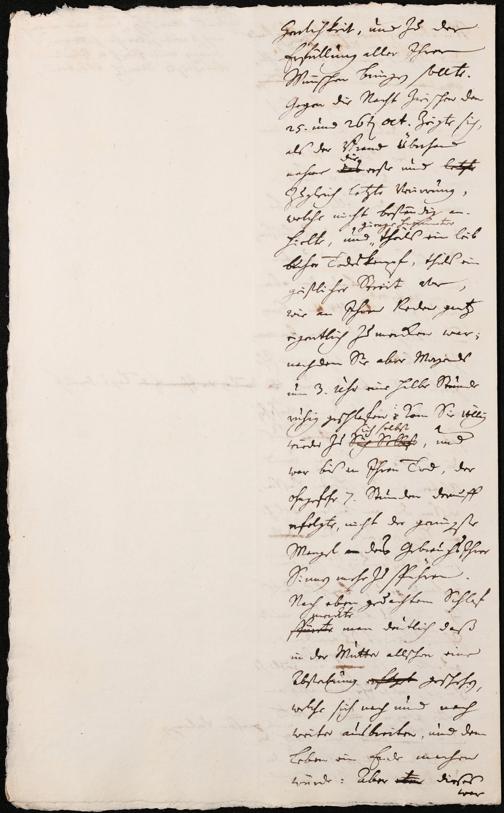 Herrlichkeit, und zu der
Erfüllung aller Ihrer
Wünschen bringen sollte.
Gegen die Nacht zwischen den
25. und 26t Oct. zeigte sich,
als der Brand überhand
nahm die erste und letzte
zugleich letzte Verirrung,
welche nicht beständig an-
hielte, und theils ein leib
licher Todeskampf, theils ein
geistlicher Streit war,
wie an Ihren Reden gantz
eigentlich zu mercken war;
nachdem Sie aber Morgends
um 3. Uhr eine halbe Stunde
ruhig geschlafen; kam Sie völlig
wieder zu sich selbst, und
war bis in Ihren Tod, der
ohngefehr 7. Stunden darauff
erfolgte, nicht der geringste
Mangel an dem Gebrauch Ihrer
Sinnen mehr zu spühren.
Nach oben gedachtem Schlaf
merckte
spürte man deutlich daß
in der Mutter allschon eine
Absterbung erfolgt geschehen,
welche sich nach und nach
weiter ausbreiten, und dem
Leben ein Ende machen
würde: Aber dieses
war